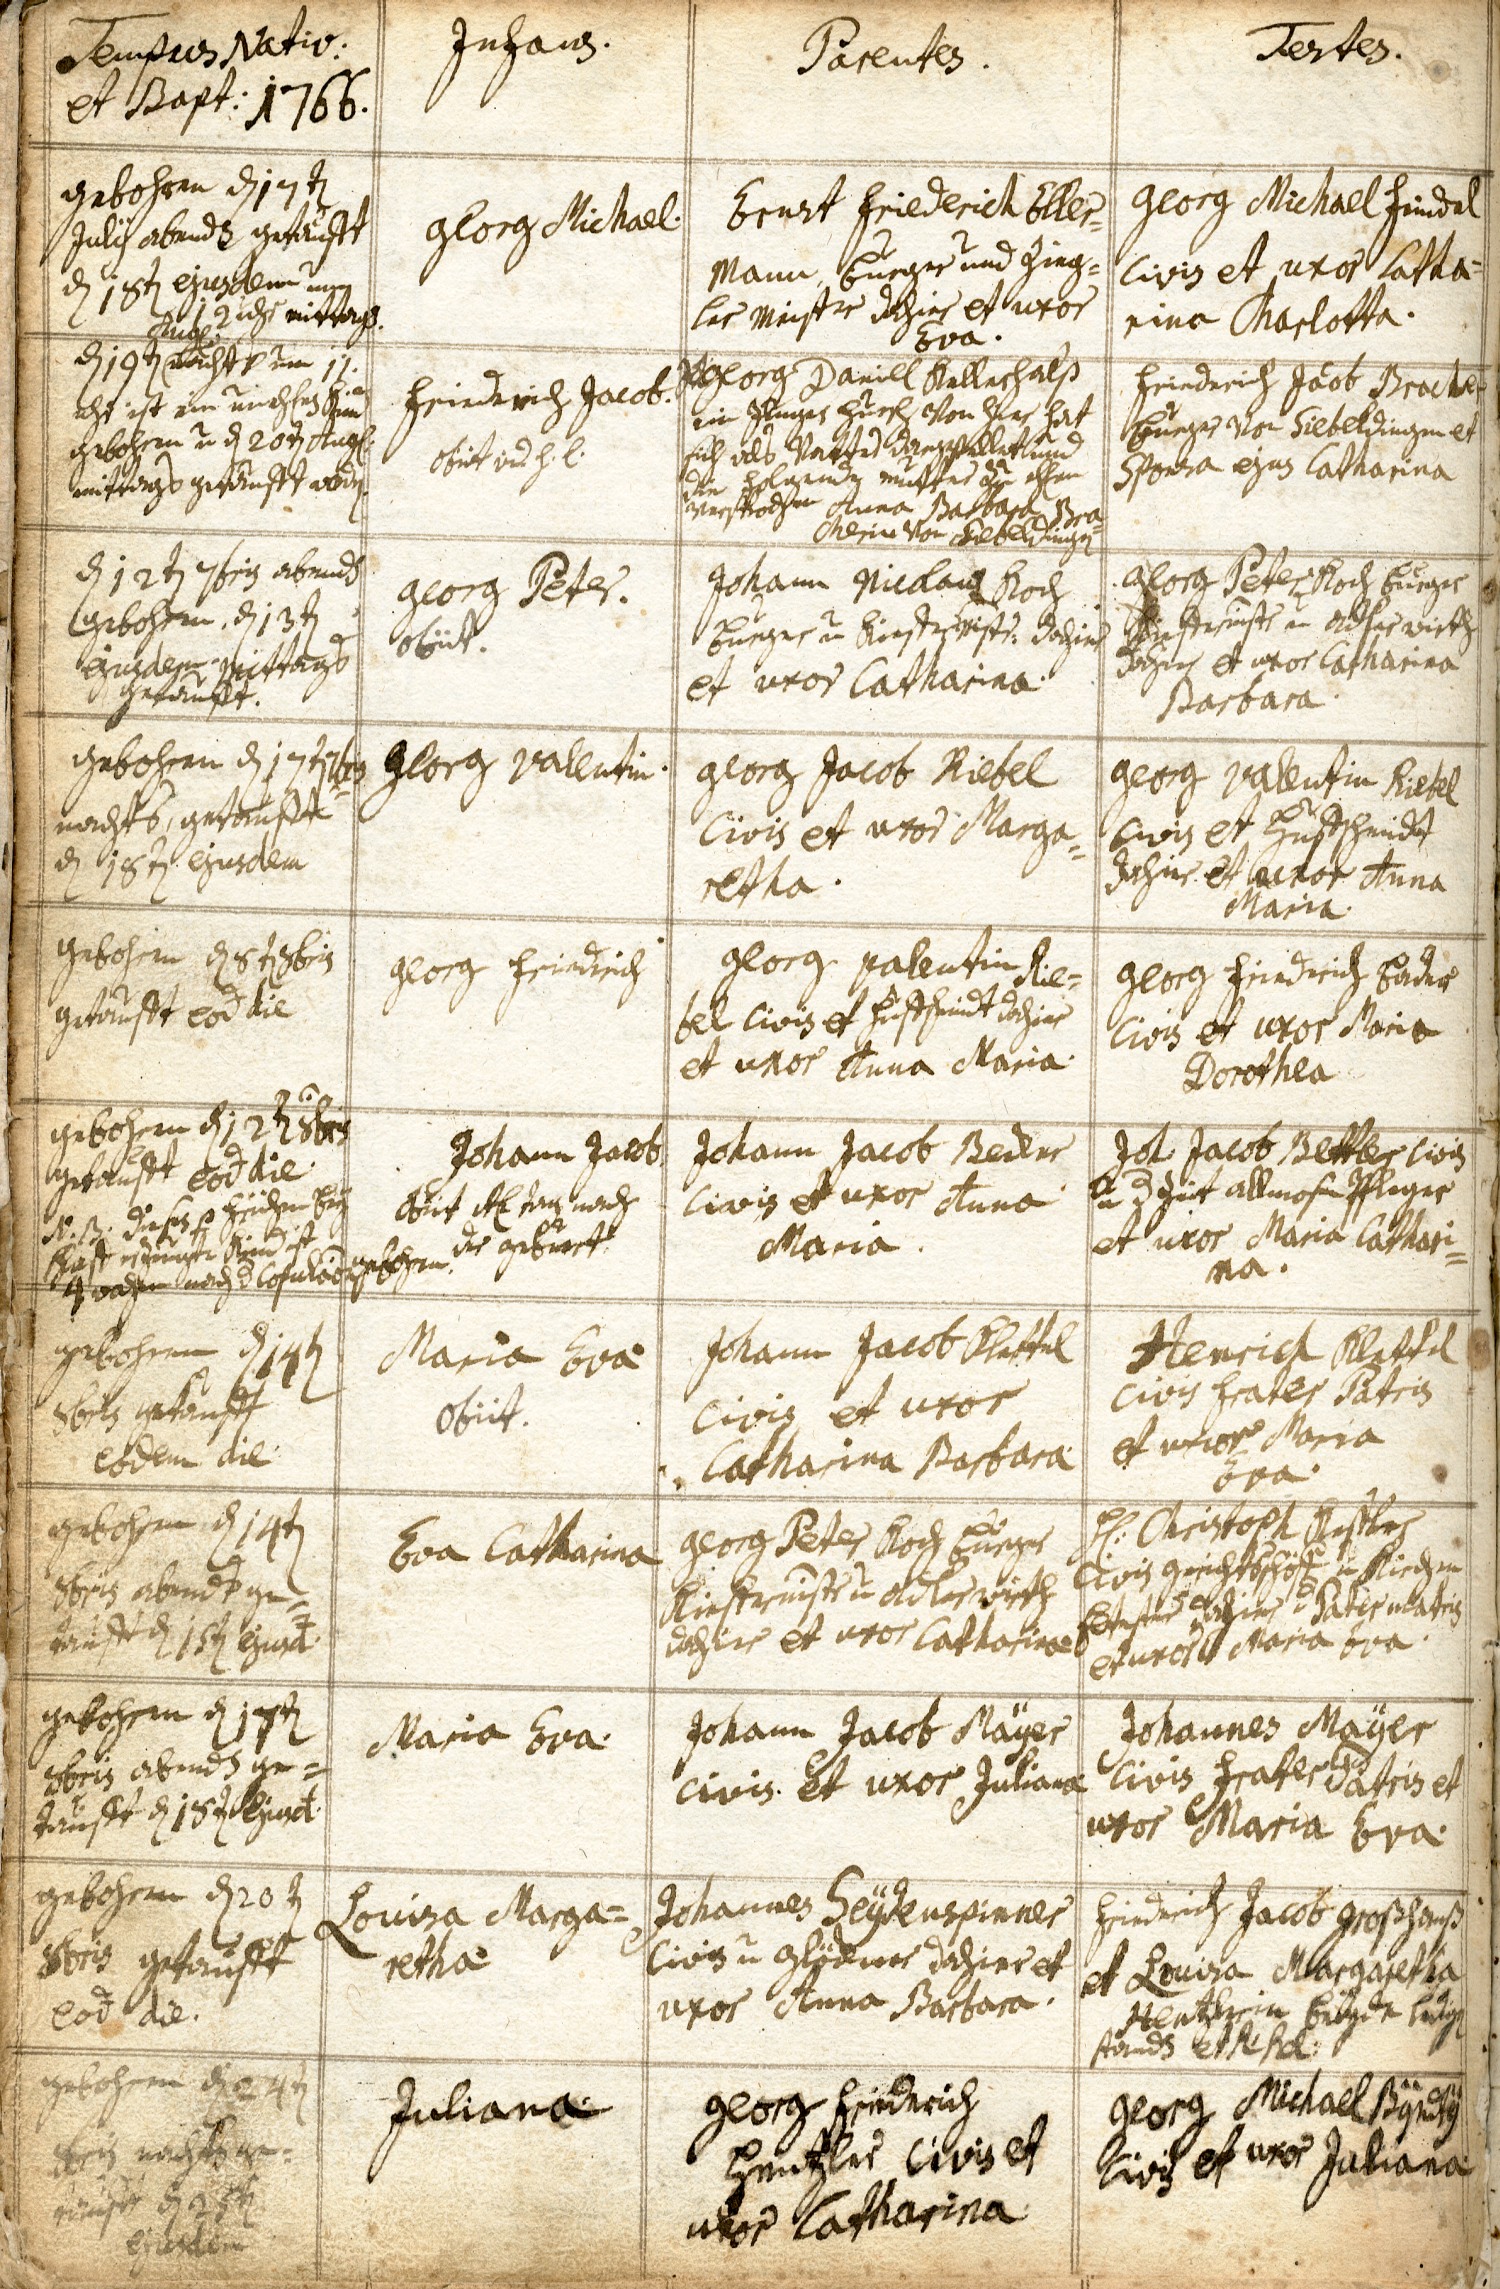 Tempus Nativ:
et Bapt: 1766.
Infans.
Parentes.
Testes.
gebohren d 17t
Julij abends getaufft
d 18t ejusdem um
12 uhr mittags.
Georg Michael.
Ernst Friederich Eller=
mann, burger und Zieg=
ler Meister dahier et uxor
Eva.
Georg Michael Findel
Civis et uxor Catha=
rina Charlotta.
Augs:
d 19t nachts um 11.
uhr ist ein
gebohren u d 20t Augs:
mittags getaufft
Friederich Jacob.
obiit
Georg Daniel
ein
sich als Vatter dargestellet und
die mutter
versprochen Anna Barbara Bra=
cherin von Siebeldingen
Friederich Jacob Brache
burger von Siebeldingen et
Sponsa ejus Catharina
d 12t 7bris abends
gebohren, d 13t
ejusdem mittags
getaufft.
Georg Peter.
obiit.
Johann Niclaus Koch
burger u dahier
et uxor Catharina.
Georg Peter Koch burger
u adlerwirth
dahier et uxor Catharina
Barbara.
gebohren d 17t 7bris
nachts, getaufft
d 18t ejusdem
Georg Valentin.
Georg Jacob Riebel
Civis et uxor Marga=
retha.
Georg Valentin Riebel
Civis et Huffschmidt
dahier et uxor Anna
Maria.
gebohren d 8t 8bris
getaufft eod die
Georg Friedrich
Georg Valentin Rie=
bel Civis et Huffschmidt dahier
et uxor Anna Maria.
Georg Friedrich Bader
Civis et uxor Maria
Dorothea
gebohren d 12t 8bris
getaufft eod die.
N. B. dieses
Kind ist
4 nach d gebohren.
Johann Jacob.
obiit tag nach
der geburt.
Johann Jacob Becker
Civis et uxor Anna
Maria.
Joh. Jacob Bettler Civis
u d Zeit allmosen Pfleger
et uxor Maria Cathari=
na.
gebohren d 14t
8bris getaufft
eodem die.
Maria Eva
obiit.
Johann Jacob Klettel
Civis et uxor
Catharina Barbara.
Henrich Klettel
Civis frater Patris
et uxor Maria
Eva.
gebohren d 14t
8bris abends ge=
taufft d 15t ejusd.
Eva Catharina
Georg Peter Koch burger
u adlerwirth
dahier et uxor Catharina
H: Christoph
Civis gerichtsschöff u Kirchen
dahier Pater matris
et uxor Maria Eva.
gebohren d 17t
8bris abends ge=
taufft d 18t ejusd.
Maria Eva.
Johann Jacob Mäyer
Civis. et uxor Juliana
Johannes Mäyer
Civis frater Patris et
uxor Maria Eva.
gebohren d 20t
8bris getaufft
eod die.
Louisa Marga=
retha
Johannes Seydenspinner
Civis u glöckner dahier et
uxor Anna Barbara.
Friedrich Jacob Großhanß
et Louisa Margaretha
beyde ledigen
stands
gebohren d 24t
8bris nachts ge=
taufft d 25t
ejusdem
Juliana.
Georg Friederich
Hentzler Civis et
uxor Catharina
Georg Michael
Civis et uxor Juliana